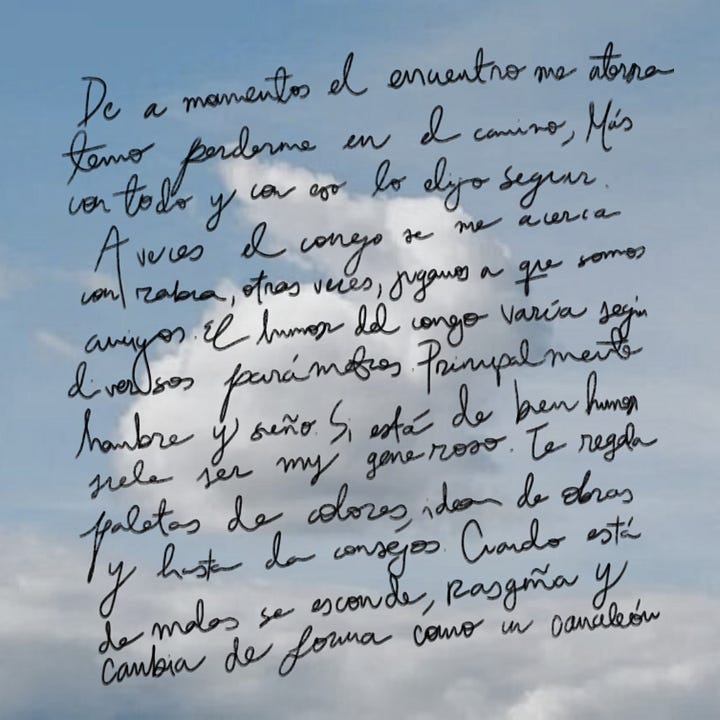 De a momentos el encuentro me aterra
temo perderme en el camino, Más
con todo y con eso lo elijo seguir.
A veces el conejo se me acerca
con rabia, otras veces, jugamos a que somos
amigos. El humor del conejo varía según
diversos parámetros. Principalmente
hambre y sueño. Si está de buen humor
suele ser muy generoso. Te regala
paletas de colores, ideas de obras
y hasta da consejos. Cuando está
de malas se esconde, rasguña y
cambia de forma como un camaleón